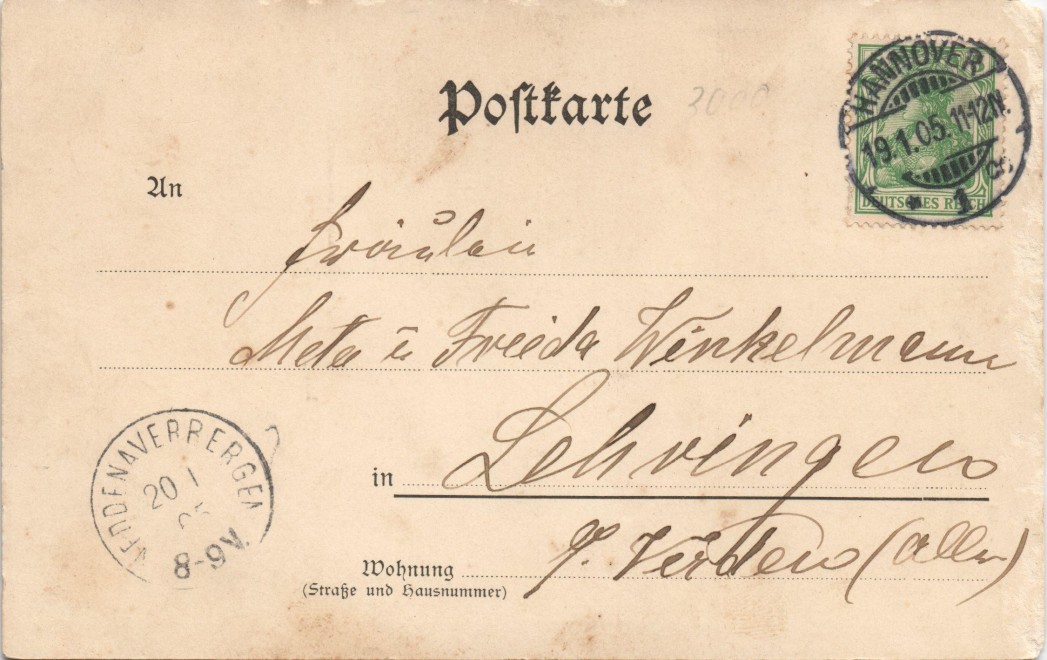 Postkarte
2000
HANNOVER
19.1.05.11-12N.
* 1 c
DEUTSCHES REICH
An
Fräulein
Meta u Frieda Winkelmann
in Lehringen
Wohnung p. Verden (Aller)
(Straße und Hausnummer)
NEDDENAVERBERGEN
20 1
05
8-9V.